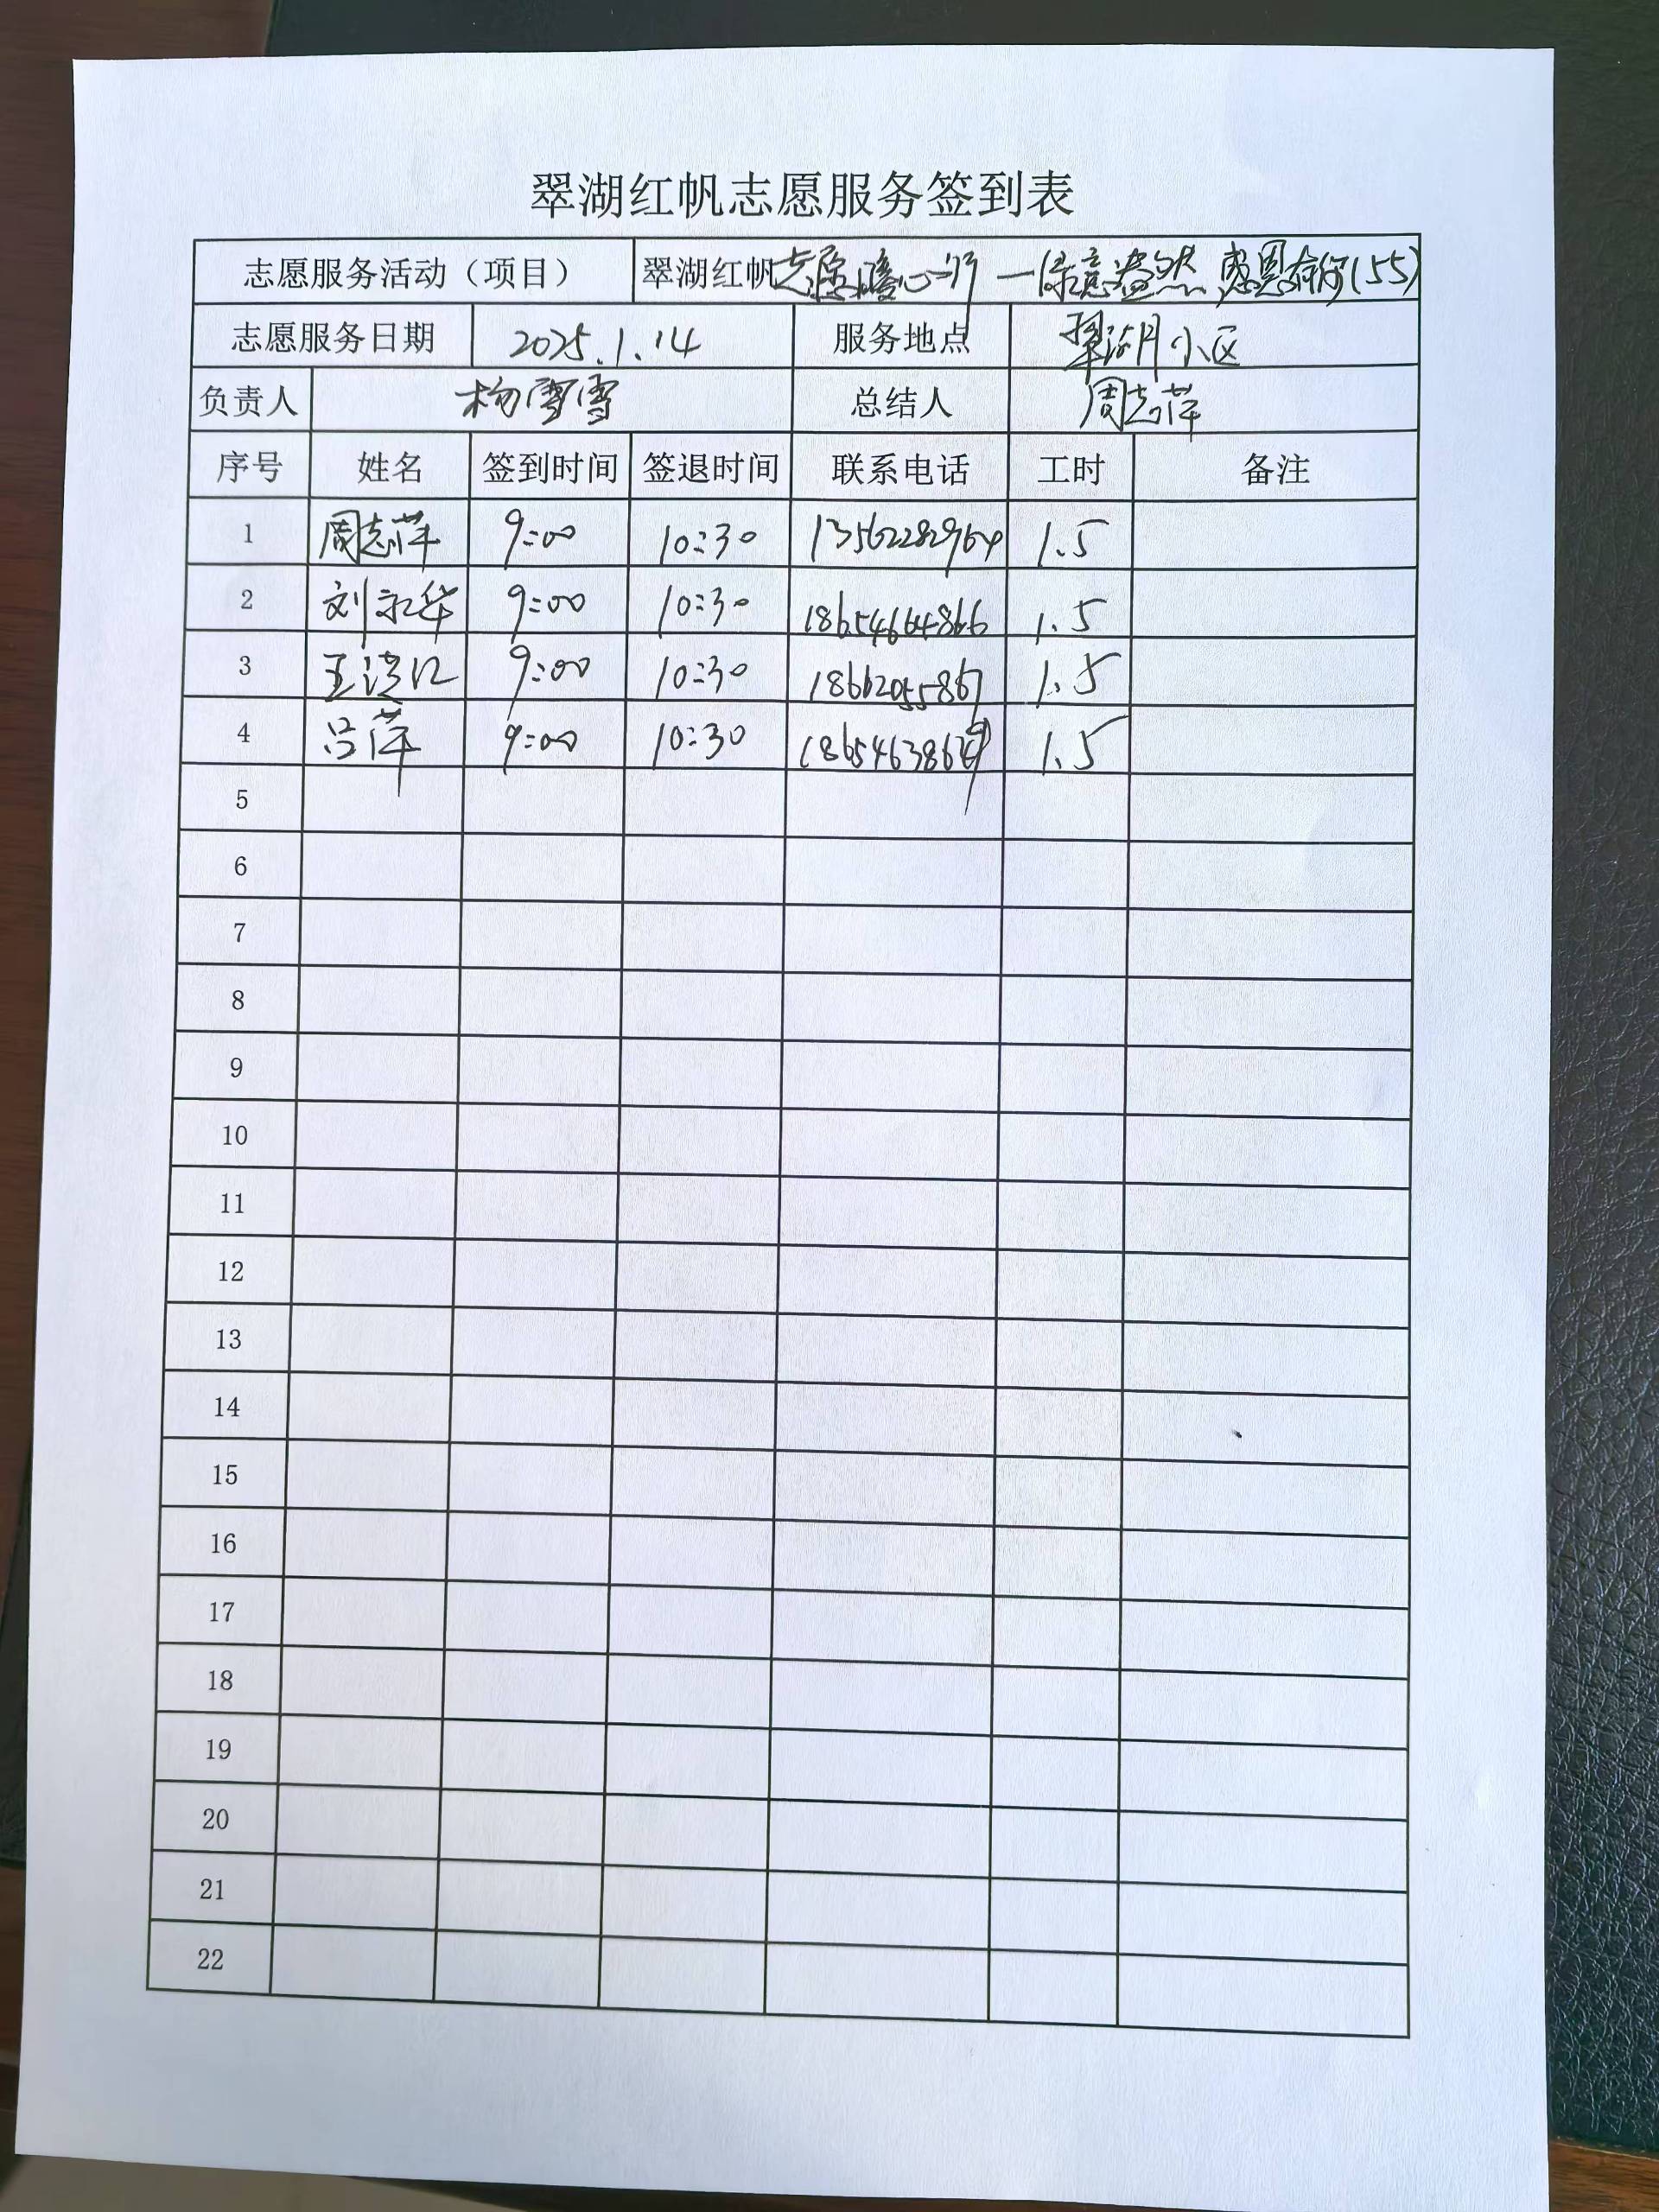 翠湖红帆志愿服务签到表
志愿服务活动（项目） 翠湖红帆志愿暖心行 一绿意盎然 感恩有你(55)
志愿服务日期 2025.1.14 服务地点 翠湖小区
负责人 杨雪雪 总结人 周志萍
序号 姓名 签到时间 签退时间 联系电话 工时 备注
1 周志萍 9:00 10:30 13562282964 1.5
2 刘永华 9:00 10:30 18654664866 1.5
3 王洪江 9:00 10:30 18662055867 1.5
4 吕萍 9:00 10:30 1.5
5
6
7
8
9
10
11
12
13
14
15
16
17
18
19
20
21
22